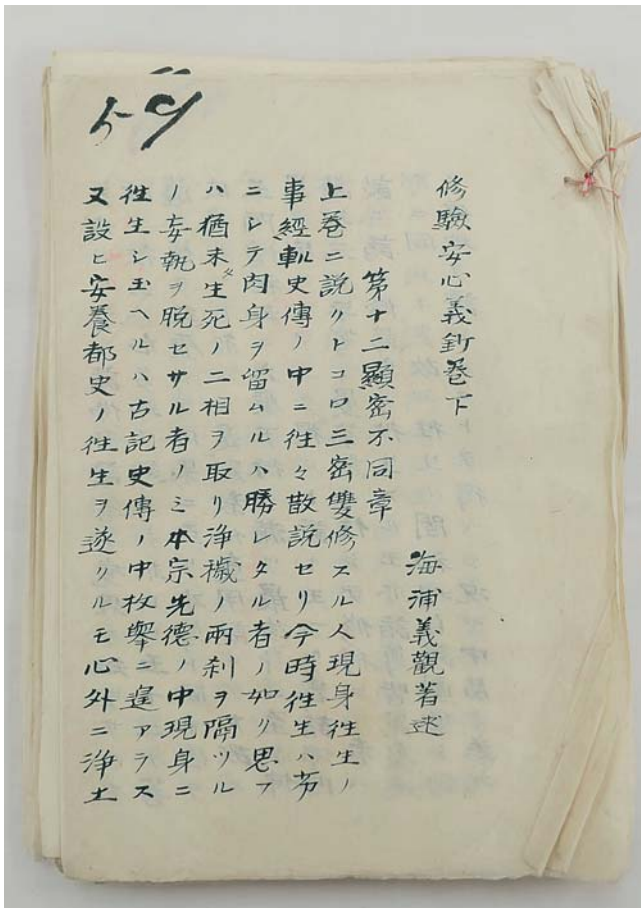 修驗安心義鈔巻下
海浦義觀著述
第十二顯密不同章
上巻ニ説クトコロ三密雙修スル人現身往生ノ
事經軌史傳ノ中ニ往々散説セリ今時往生ハ劣
ニシテ肉身ヲ留ムルハ勝レタル者ノ如ク思フ
ハ猶未タ生死ノ二相ヲ取リ浄穢ノ兩刹ヲ隔ツル
ノ妄執ヲ脱セサル者ノミ本宗先徳ノ中現身ニ
往生シ玉ヘルハ古記史傳ノ中枚舉ニ遑アラス
又設ヒ安養都史ノ往生ヲ遂クルモ心外ニ浄土